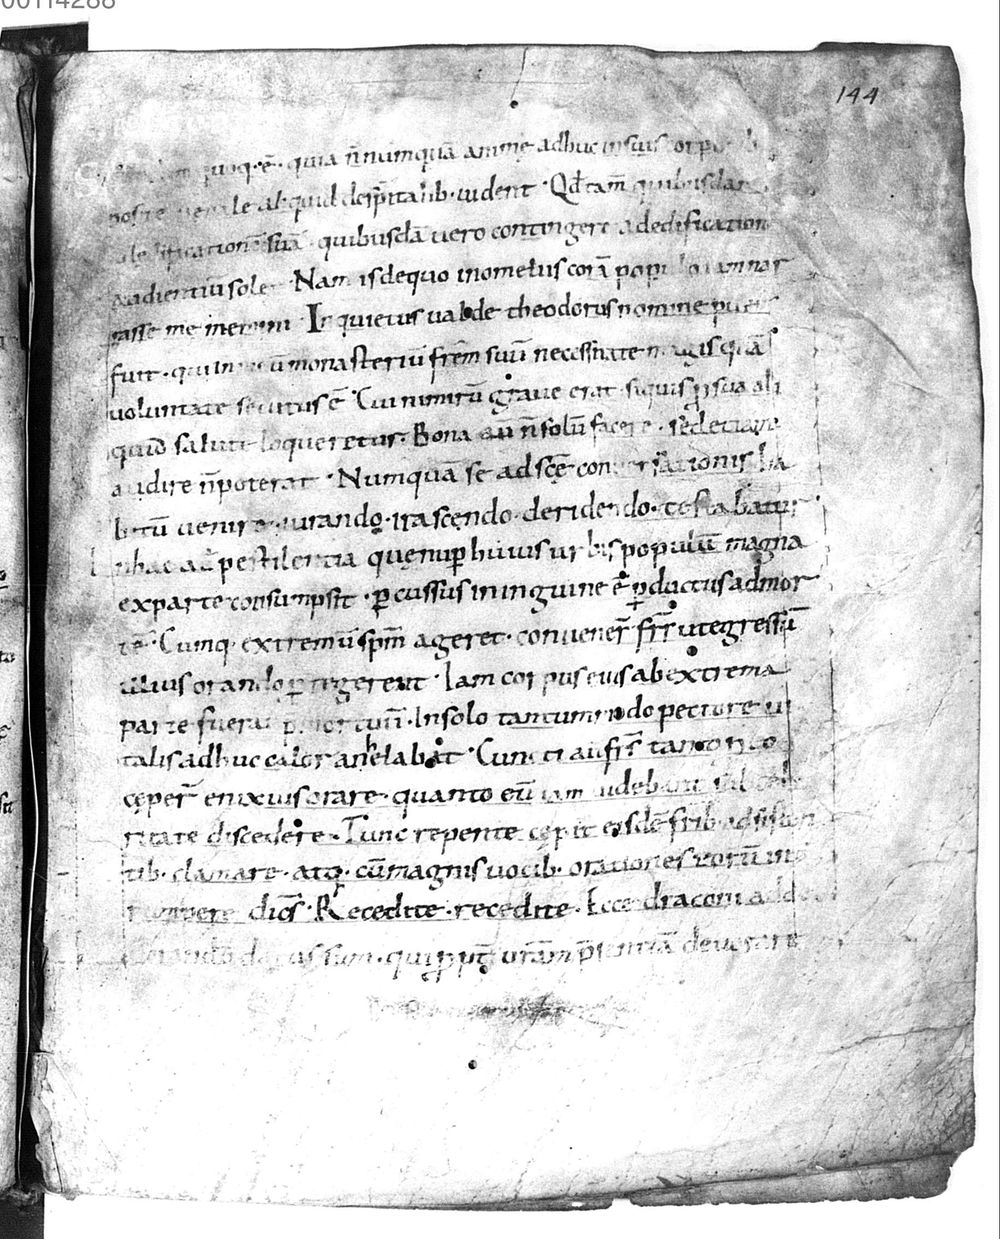 00114288
144
quoq·ē· quia n̄numquā anime adhuc insuis corpo
aliquid desp̄italib·uident ·Qd̄ tam̄ quibusdam
edificationē suā· quibusdā uero contingere adedification
audientiū sole Nam isdequo inomeliis corā populo iamnar
rasse me memini Inquietus ualde theodorus nomine puer
fuit· qui in monasteriū frēm suū necessitate magis quā
uoluntate secutus ē· Cui nimirū graue erat· siquis ꝓ sua ali
quid salute loqueretur· Bona aū n̄solū facere· sedetiam
audire n̄poterat· Numquā se adscē conuersationis ha
bitū uenire· iurando· irascendo· deridendo· testabatur
inhac aū pestilentia quenuꝑ huius urbis populū magna
exparte consumpsit· ꝑcussus ininguine ē ꝑductus admor
tē· Cumq· extremū sp̄m ageret· conuener̄ frr̄ utegressū
illius orando ꝓtegerent· Iam corpus eius abextrema
parte fuerat Insolo tantummodo pectore ui
talis adhuc calor anhelabat· Cuncti aū frr̄ tanto ꝓ eo
cęper̄ enixius orare· quanto eū iam uidebant
ritate discedere· Tunc repente cępit eisdē frib· adsisten
tib· clamare· atq· cū magnis uocib· orationes eorū int
rumpere dicēs· Recedite· recedite· Ecce draconi adde
uorandū datus sum· qui ꝓpt̄ urām p̄sentiā deuorare